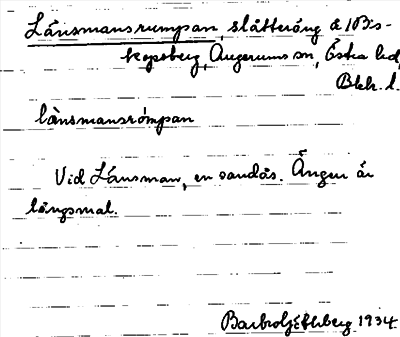 Länsmansrumpan, slåtteräng å 1 Bis-
kopsberg, Ångerums sn, Östra hd,
Blek. l.
lànsmansrómpan
Vid Länsman, en sandås. Ängen är
långsmal.
Barbro Ljethberg 1934.